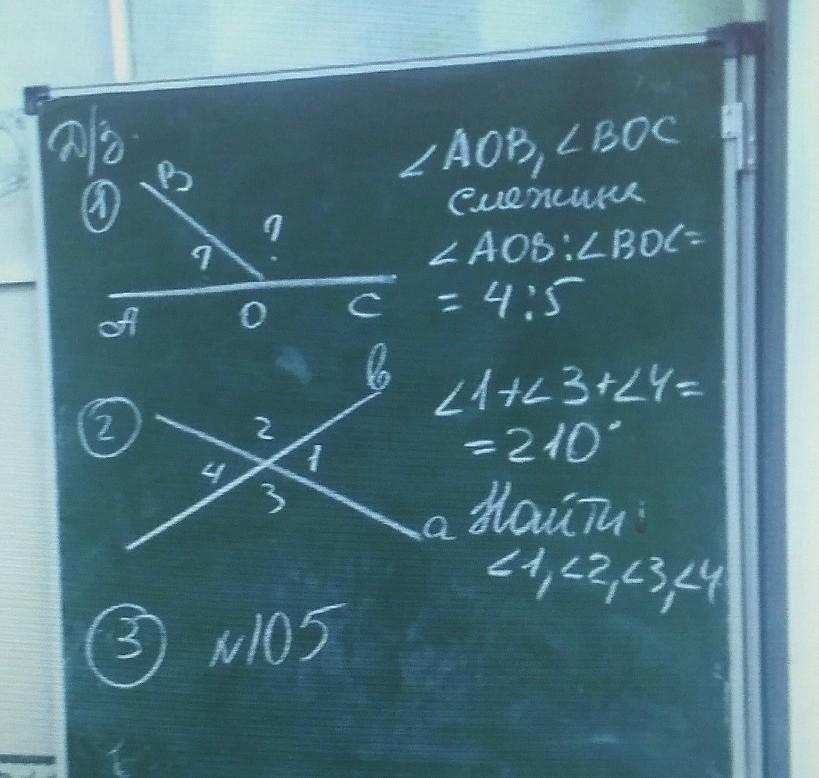 Д/з.
① B
? ?
A O C
∠AOB, ∠BOC
смежные
∠AOB:∠BOC=
= 4:5
② b
2
4 1
3
a
∠1+∠3+∠4=
=210°
Найти:
∠1,∠2,∠3,∠4
③ №105